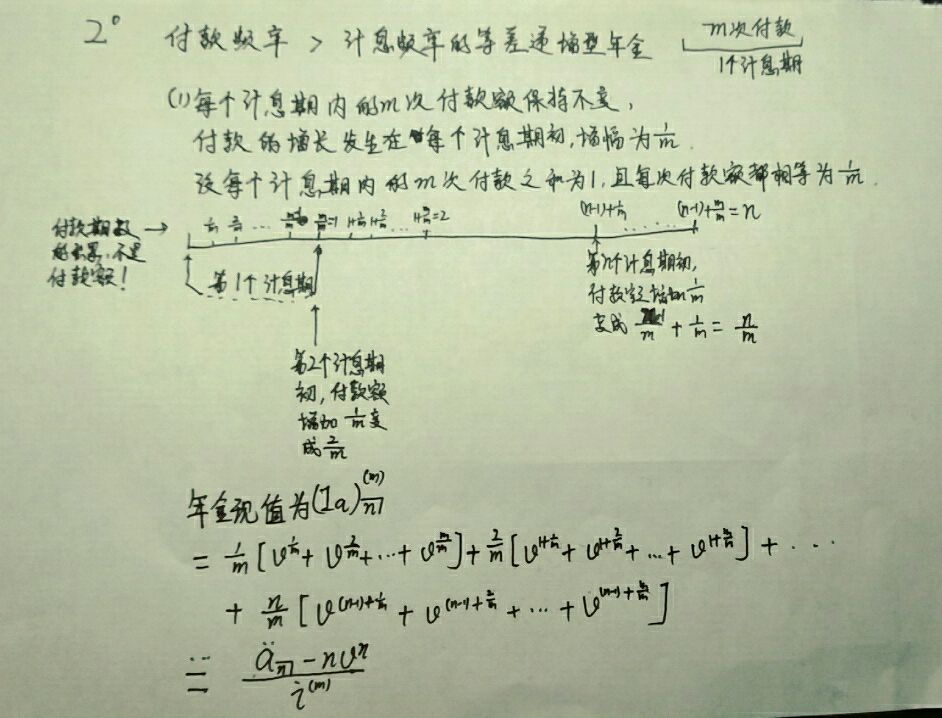 2° 付款频率 > 计息频率的等差递增型年金 m次付款
1个计息期
(1) 每个计息期内的m次付款额保持不变,
付款的增长发生在每个计息期初,增幅为 1/m.
设每个计息期内的m次付款之和为1,且每次付款额都相等为 1/m.
付款期数 →
付款额!
1/m 2/m … m/m=1 1+1/m 1+2/m … 1+m/m=2 (n-1)+1/m … (n-1)+m/m=n
第1个计息期
第n个计息期初,
付款额增加 1/m
变成 n-1/m + 1/m = n/m
第2个计息期
初,付款额
增加 1/m 变
成 2/m
年金现值为 (Ia)n̅|^(m)
= 1/m [v^(1/m) + v^(2/m) + … + v^(m/m)] + 2/m [v^(1+1/m) + v^(1+2/m) + … + v^(1+m/m)] + …
+ n/m [v^((n-1)+1/m) + v^((n-1)+2/m) + … + v^((n-1)+m/m)]
= (än̅| - nvⁿ) / i^(m)